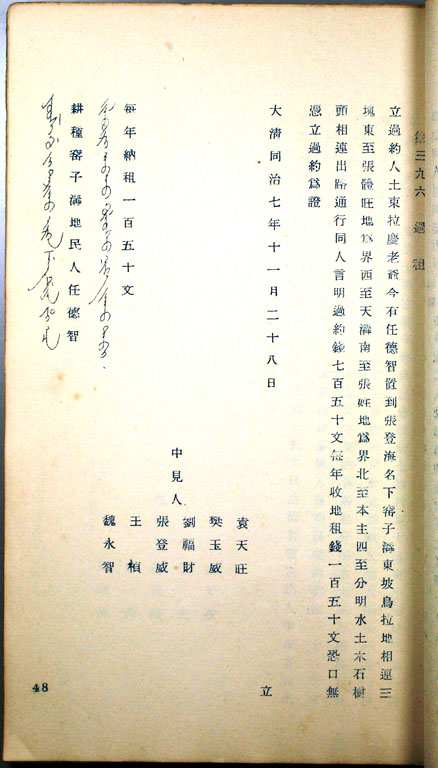 三九六　過租
立過約人土東拉慶老爺今有任德智置到張登海名下窑子溝東坡烏拉地相連三
塊東至張體旺地爲界西至天溝南至張旺地爲界北至本主四至分明水土木石樹
頭相連出路通行同人言明過約錢七百五十文每年收地租錢一百五十文恐口無
憑立過約爲證
大清同治七年十一月二十八日
立
袁天旺
樊玉威
中見人
劉福財
張登威
王楨
魏永智
每年納租一百五十文
耕種窑子溝地民人任德智
48